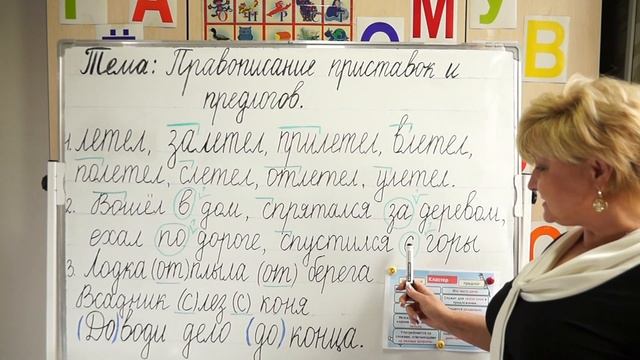 Тема: Правописание приставок и
предлогов.
1. летел, залетел, прилетел, влетел,
полетел, слетел, отлетел, улетел.
2. Вошёл в дом, спрятался за деревом,
ехал по дороге, спустился с горы
3. Лодка (от)плыла (от) берега
Всадник (с)лез (с) коня
(До)води дело (до) конца.
Кластер
предлог
Г А
М У
В
О